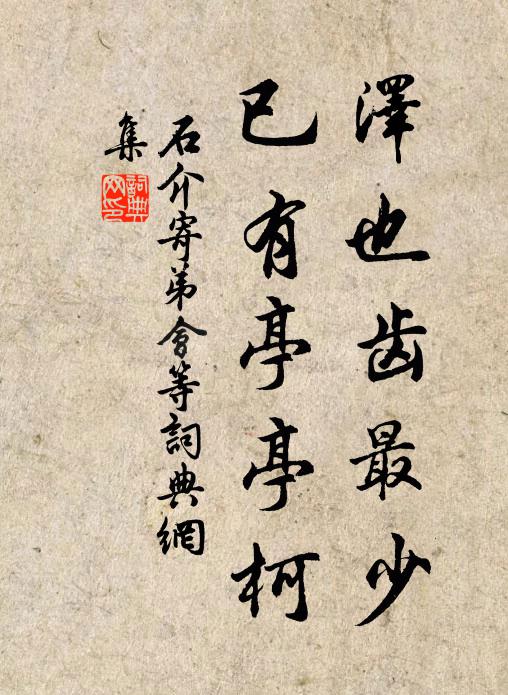 澤也齿最少
已有亭亭柯
石介寄弟會等詞典網
集
詞典
网印